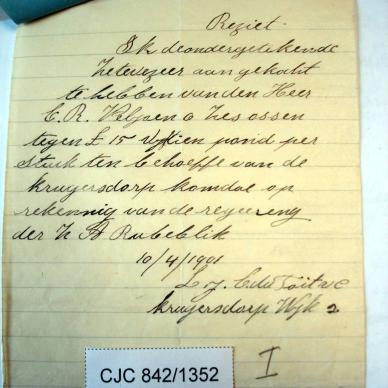 Reziet.
Ik de ondergetekende
gekocht
te hebben van den Heer
C. R. Viljoen 6 zes ossen
tegen £ 15 Vyftien pond per
stuk ten behoeffe van de
krugersdorp komdoe op
rekennig van de regeering
der Z A Rubeblik
10/4/1901
krugersdorp Wyk 2
CJC 842/1352
I